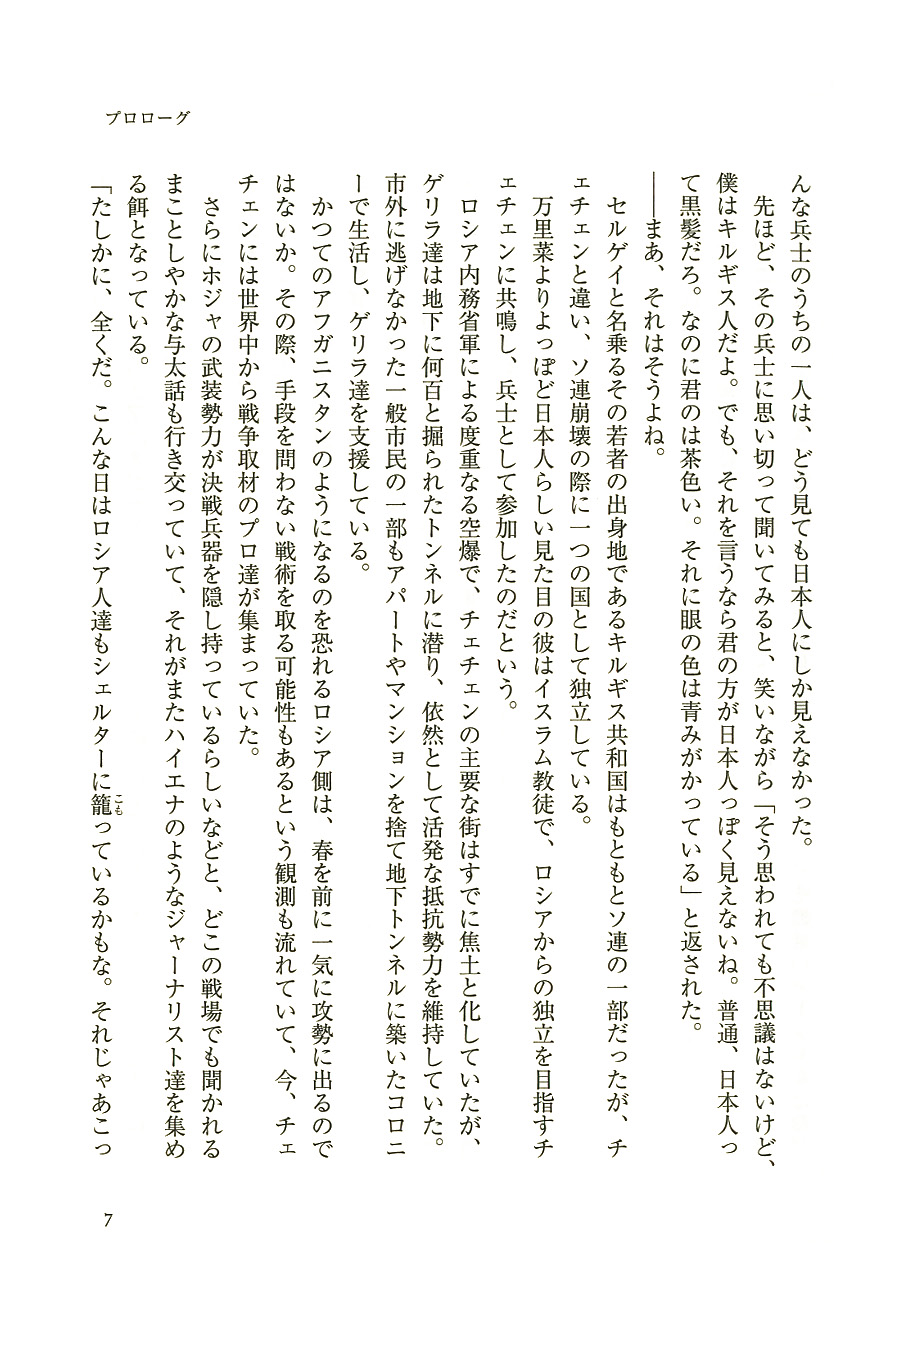 プロローグ
んな兵士のうちの一人は、どう見ても日本人にしか見えなかった。
　先ほど、その兵士に思い切って聞いてみると、笑いながら「そう思われても不思議はないけど、
僕はキルギス人だよ。でも、それを言うなら君の方が日本人っぽく見えないね。普通、日本人っ
て黒髪だろ。なのに君のは茶色い。それに眼の色は青みがかっている」と返された。
――まあ、それはそうよね。
　セルゲイと名乗るその若者の出身地であるキルギス共和国はもともとソ連の一部だったが、チ
ェチェンと違い、ソ連崩壊の際に一つの国として独立している。
　万里菜よりよっぽど日本人らしい見た目の彼はイスラム教徒で、ロシアからの独立を目指すチ
ェチェンに共鳴し、兵士として参加したのだという。
　ロシア内務省軍による度重なる空爆で、チェチェンの主要な街はすでに焦土と化していたが、
ゲリラ達は地下に何百と掘られたトンネルに潜り、依然として活発な抵抗勢力を維持していた。
市外に逃げなかった一般市民の一部もアパートやマンションを捨て地下トンネルに築いたコロニ
ーで生活し、ゲリラ達を支援している。
　かつてのアフガニスタンのようになるのを恐れるロシア側は、春を前に一気に攻勢に出るので
はないか。その際、手段を問わない戦術を取る可能性もあるという観測も流れていて、今、チェ
チェンには世界中から戦争取材のプロ達が集まっていた。
　さらにホジャの武装勢力が決戦兵器を隠し持っているらしいなどと、どこの戦場でも聞かれる
まことしやかな与太話も行き交っていて、それがまたハイエナのようなジャーナリスト達を集め
る餌となっている。
「たしかに、全くだ。こんな日はロシア人達もシェルターに籠こもっているかもな。それじゃあこっ
7